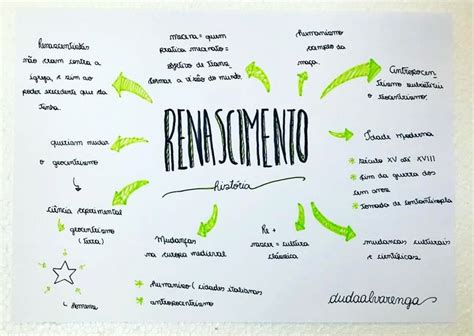 Renascentistas
não eram contra a
igreja, e sim ao
poder excedente que ela
tinha.
mecena = quem
pratica mecenato =
objetivo de trans-
formar a visão do mundo.
Humanismo
campo da
Antropocen-
trismo substituiu
o teocentrismo.
queriam mudar
o geocentrismo
RENASCIMENTO
história
Idade moderna
* século XV até XVIII
* fim da guerra dos
cem anos
* Tomada de constantinopla
ciência experimental
geocentrismo
(terra)
Homem
Mudanças
na europa medieval
* humanismo (cidades italianas)
* antropocentrismo
Re +
nascer = cultura
clássica
mudanças culturais
e científicas.
dudaalvarenga